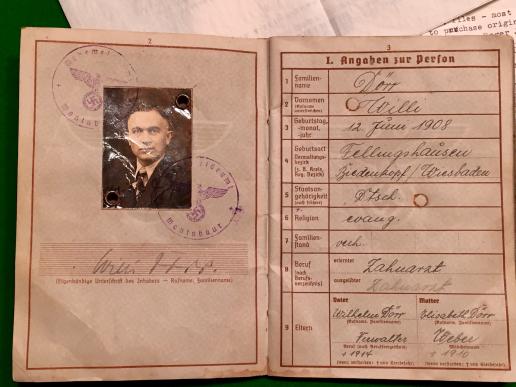 files - most
to purchase origin
2
Willi Dörr
(Eigenhändige Unterschrift des Inhabers – Rufname, Familienname)
3
I. Angaben zur Person
1 Familien-
name
Dörr
2 Vornamen
(Rufname
unterstreichen)
Willi
3 Geburtstag,
-monat,
-jahr
12. Juni 1908
4 Geburtsort
Verwaltungs-
bezirk
(z. B. Kreis,
Reg. Bezirk)
Fellingshausen
Biedenkopf/Wiesbaden
5 Staatsan-
gehörigkeit
(auch frühere)
Dtsch.
6 Religion
evang.
7 Familien-
stand
verh.
8 Beruf
(nach
Berufs-
verzeichnis)
erlernter
Zahnarzt
ausgeübter
Zahnarzt
9 Eltern
Vater
Mutter
Wilhelm Dörr
Elisabeth Dörr
(Rufname, Familienname)
(Rufname, Familienname)
Verwalter
Weber
Beruf (nach Berufsverzeichnis)
(Mädchenname)
† 1914
† 1910